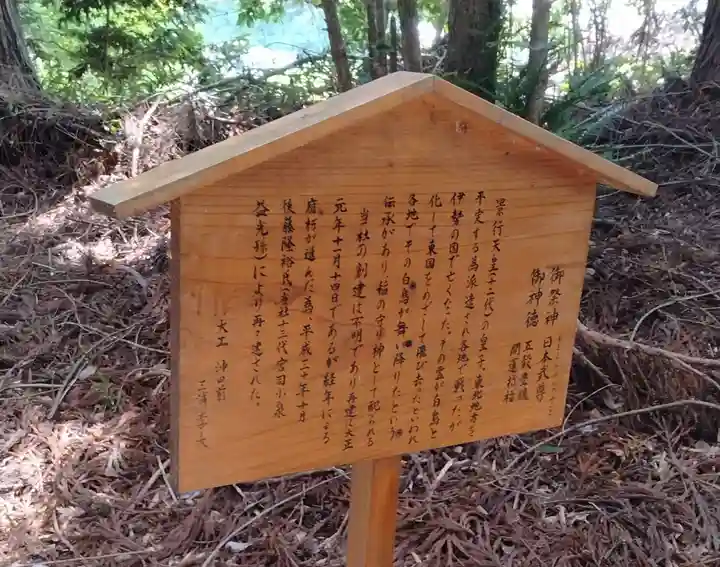 御祭神 日本武尊
御神徳 五穀豊穣
開運招福
景行天皇(十二代)の皇子、東北地方を
平定する為派遣され各地で戦ったが
伊勢の国で亡くなった。その霊が白鳥と
化して東国をめざして飛び去ったといわれ
各地でその白鳥が舞い降りたという
伝承があり稲の守護神として祀られる
当社の創建は不明であり再建は大正
元年十一月十四日であるが経年による
腐朽が進んだ為、平成二十年十月
後藤隆裕氏(当社十三代宮司小泉
益光孫)により再々建された。
大工 沖田
三浦